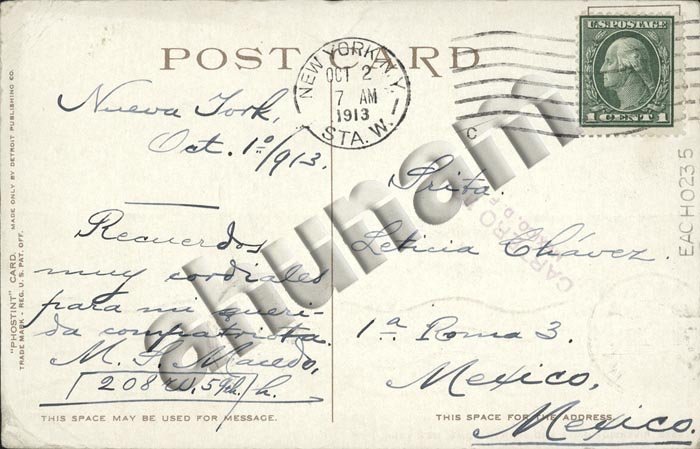 POST CARD
NEW YORK, N.Y.
OCT 2
7 AM
1913
STA. W.
C
U.S. POSTAGE
1 CENT 1
Nueva York,
Oct. 1º/913.
Recuerdos
muy cordiales
para mi queri-
da compatriota.
M. S. Macedo,
208 W. 59th
Srita.
Leticia Chávez.
1ª Roma 3.
Mexico,
Mexico.
CARTERO
MEXICO, D.F.
ahunam
EACH0235
"PHOSTINT" CARD. MADE ONLY BY DETROIT PUBLISHING CO.
TRADE MARK - REG. U.S. PAT. OFF.
THIS SPACE MAY BE USED FOR MESSAGE.
THIS SPACE FOR THE ADDRESS.